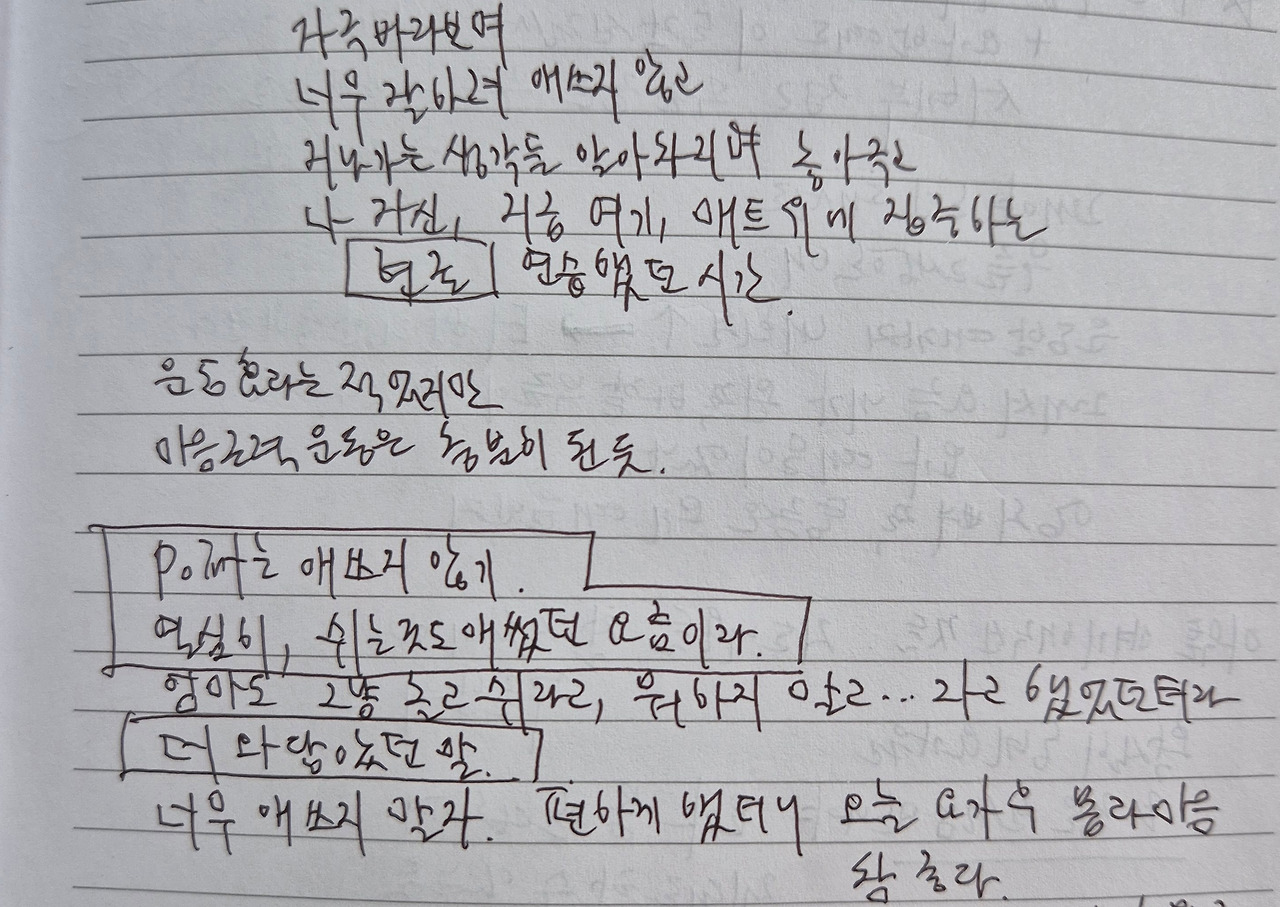 자극 바라보며
너무 잘하려 애쓰지 않고
지나가는 생각들 알아차리며 놓아주고
나 자신, 지금 여기, 매트 위에 집중하는
연습했던 시간.
운동효과는 적었지만
마음근력 운동은 충분히 된 듯.
애쓰지 않기.
역설이, 쉬는것도 애썼던 요즘이라.
엄마도 그냥 놀고 쉬라고, 뭐하지 말고... 라고 했었던터라
더 와닿았던 말.
너무 애쓰지 말자. 편하게 했더니 오늘 요가후 몸과마음
참 좋다.